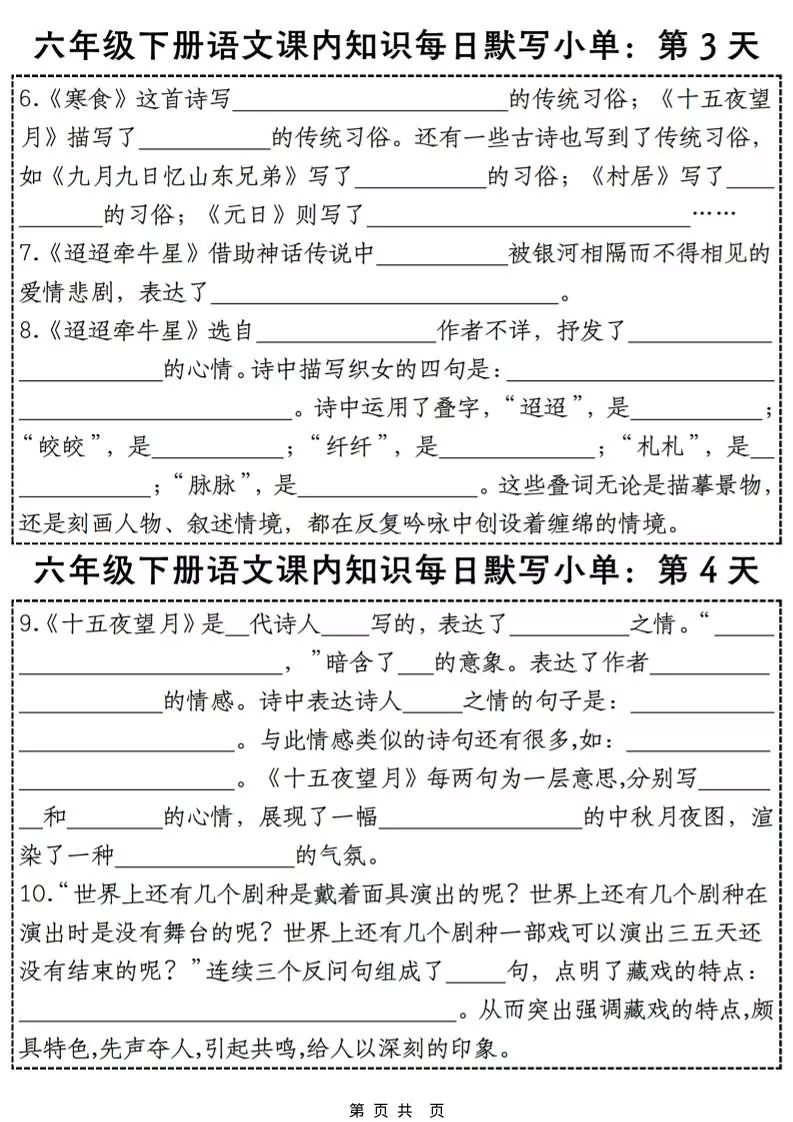 六年级下册语文课内知识每日默写小单：第 3 天
6.《寒食》这首诗写_______________________的传统习俗；《十五夜望
月》描写了___________的传统习俗。还有一些古诗也写到了传统习俗，
如《九月九日忆山东兄弟》写了___________的习俗；《村居》写了____
_______的习俗；《元日》则写了___________________________……
7.《迢迢牵牛星》借助神话传说中___________被银河相隔而不得相见的
爱情悲剧，表达了_____________________________。
8.《迢迢牵牛星》选自_______________作者不详，抒发了____________
____________的心情。诗中描写织女的四句是：______________________
_______________________。诗中运用了叠字，“迢迢”，是___________；
“皎皎”，是___________；“纤纤”，是_____________；“札札”，是__
___________；“脉脉”，是_______________。这些叠词无论是描摹景物，
还是刻画人物、叙述情境，都在反复吟咏中创设着缠绵的情境。
六年级下册语文课内知识每日默写小单：第 4 天
9.《十五夜望月》是__代诗人____写的，表达了__________之情。“_____
______________________，”暗含了___的意象。表达了作者__________
____________的情感。诗中表达诗人_____之情的句子是：____________
__________________。与此情感类似的诗句还有很多,如：____________
__________________。《十五夜望月》每两句为一层意思,分别写______
__和________的心情，展现了一幅_________________的中秋月夜图，渲
染了一种_______________的气氛。
10.“世界上还有几个剧种是戴着面具演出的呢？世界上还有几个剧种在
演出时是没有舞台的呢？世界上还有几个剧种一部戏可以演出三五天还
没有结束的呢？”连续三个反问句组成了_____句，点明了藏戏的特点：
____________________________________。从而突出强调藏戏的特点,颇
具特色,先声夺人,引起共鸣,给人以深刻的印象。
第 页 共 页